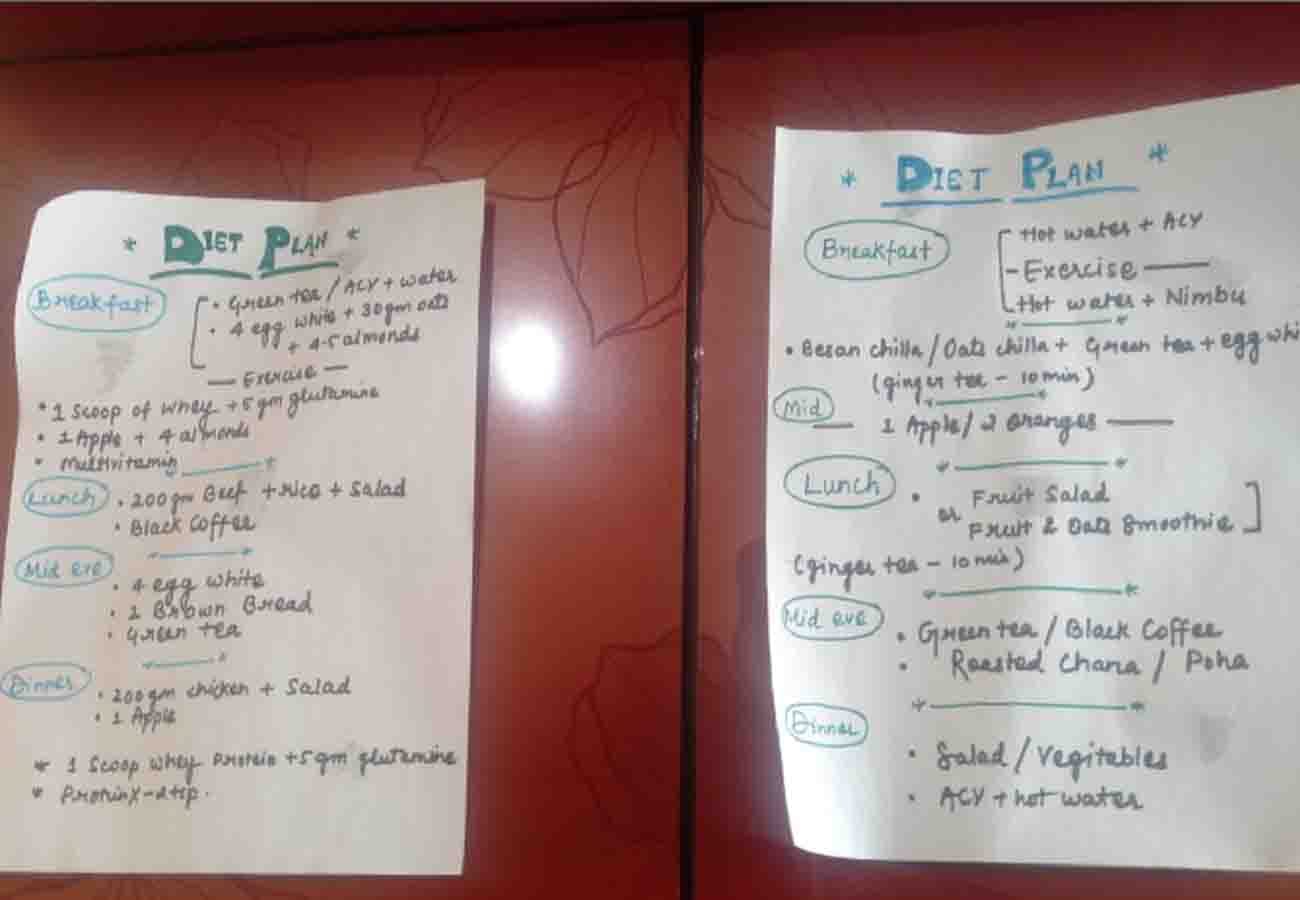 * DIET PLAN *
Breakfast
• Green tea / ACV + water
• 4 egg white + 30gm oats
+ 4-5 almonds
— Exercise —
* 1 Scoop of whey + 5 gm glutamine
• 1 Apple + 4 almonds
• Multivitamin
Lunch • 200gm Beef + rice + Salad
• Black Coffee
Mid eve
• 4 egg white
• 2 Brown Bread
• Green tea
Dinner
• 200gm chicken + Salad
• 1 Apple
* 1 Scoop whey Protein + 5 gm glutamine
* ProtinX - 2tsp.
* DIET PLAN *
Breakfast
Hot water + ACV
- Exercise —
Hot water + Nimbu
• Besan chilla / Oats chilla + Green tea + egg whi
(ginger tea - 10 min)
Mid
— 1 Apple / 2 Oranges —
Lunch • Fruit Salad
or Fruit & Oats Smoothie
(ginger tea - 10 min)
Mid eve
• Green tea / Black Coffee
• Roasted Chana / Poha
Dinner
• Salad / Vegitables
• ACV + hot water